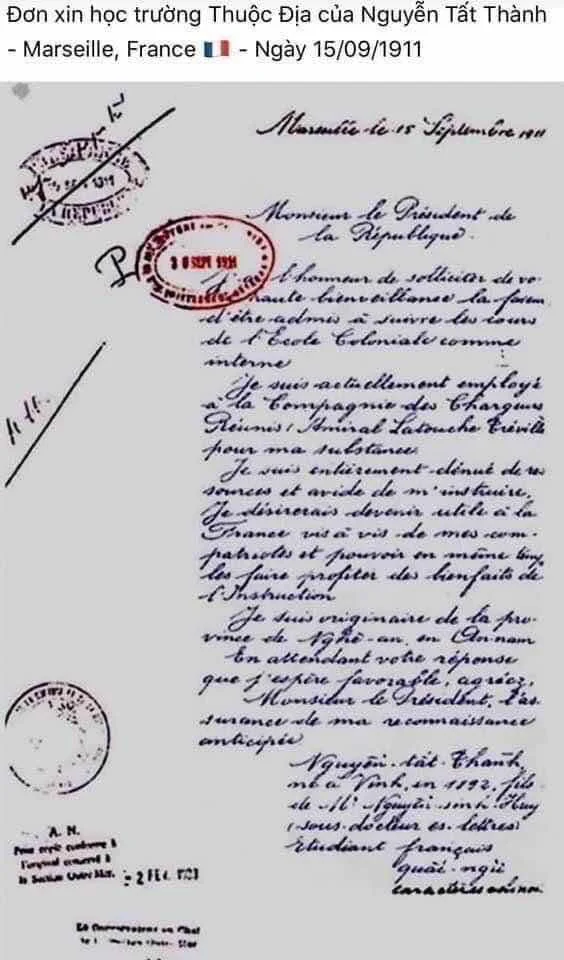 Đơn xin học trường Thuộc Địa của Nguyễn Tất Thành
- Marseille, France 🇫🇷 - Ngày 15/09/1911
Marseille le 15 Septembre 1911
Monsieur le Président de
la République.
J'ai l'honneur de solliciter de vo
haute bienveillance la faveur
d'être admis à suivre les cours
de l'Ecole Coloniale comme
interne
Je suis actuellement employé
à la Compagnie des Chargeurs
Réunis, Amiral Latouche Tréville
pour ma substance
Je suis entièrement dénué de res
sources et avide de m'instruire.
Je désirerais devenir utile à la
France vis à vis de mes com-
patriotes et pouvoir en même temps
les faire profiter des bienfaits de
l'Instruction
Je suis originaire de la pro-
vince de Nghê-an, en An-nam
En attendant votre réponse
que j'espère favorable, agréez,
Monsieur le Président, l'as
surance de ma reconnaissance
anticipée
Nguyên-tât-Thanh,
né à Vinh, en 1892, fils
de Mr Nguyên-sinh-Huy
(sous-docteur ès-lettres)
Etudiant français
quôc-ngü
caractères chinois
SEPT 1911
A. N.
Pour copie conforme à
l'original conservé à
la Section Outre-Mer.
2 FEV.
Le Conservateur en Chef